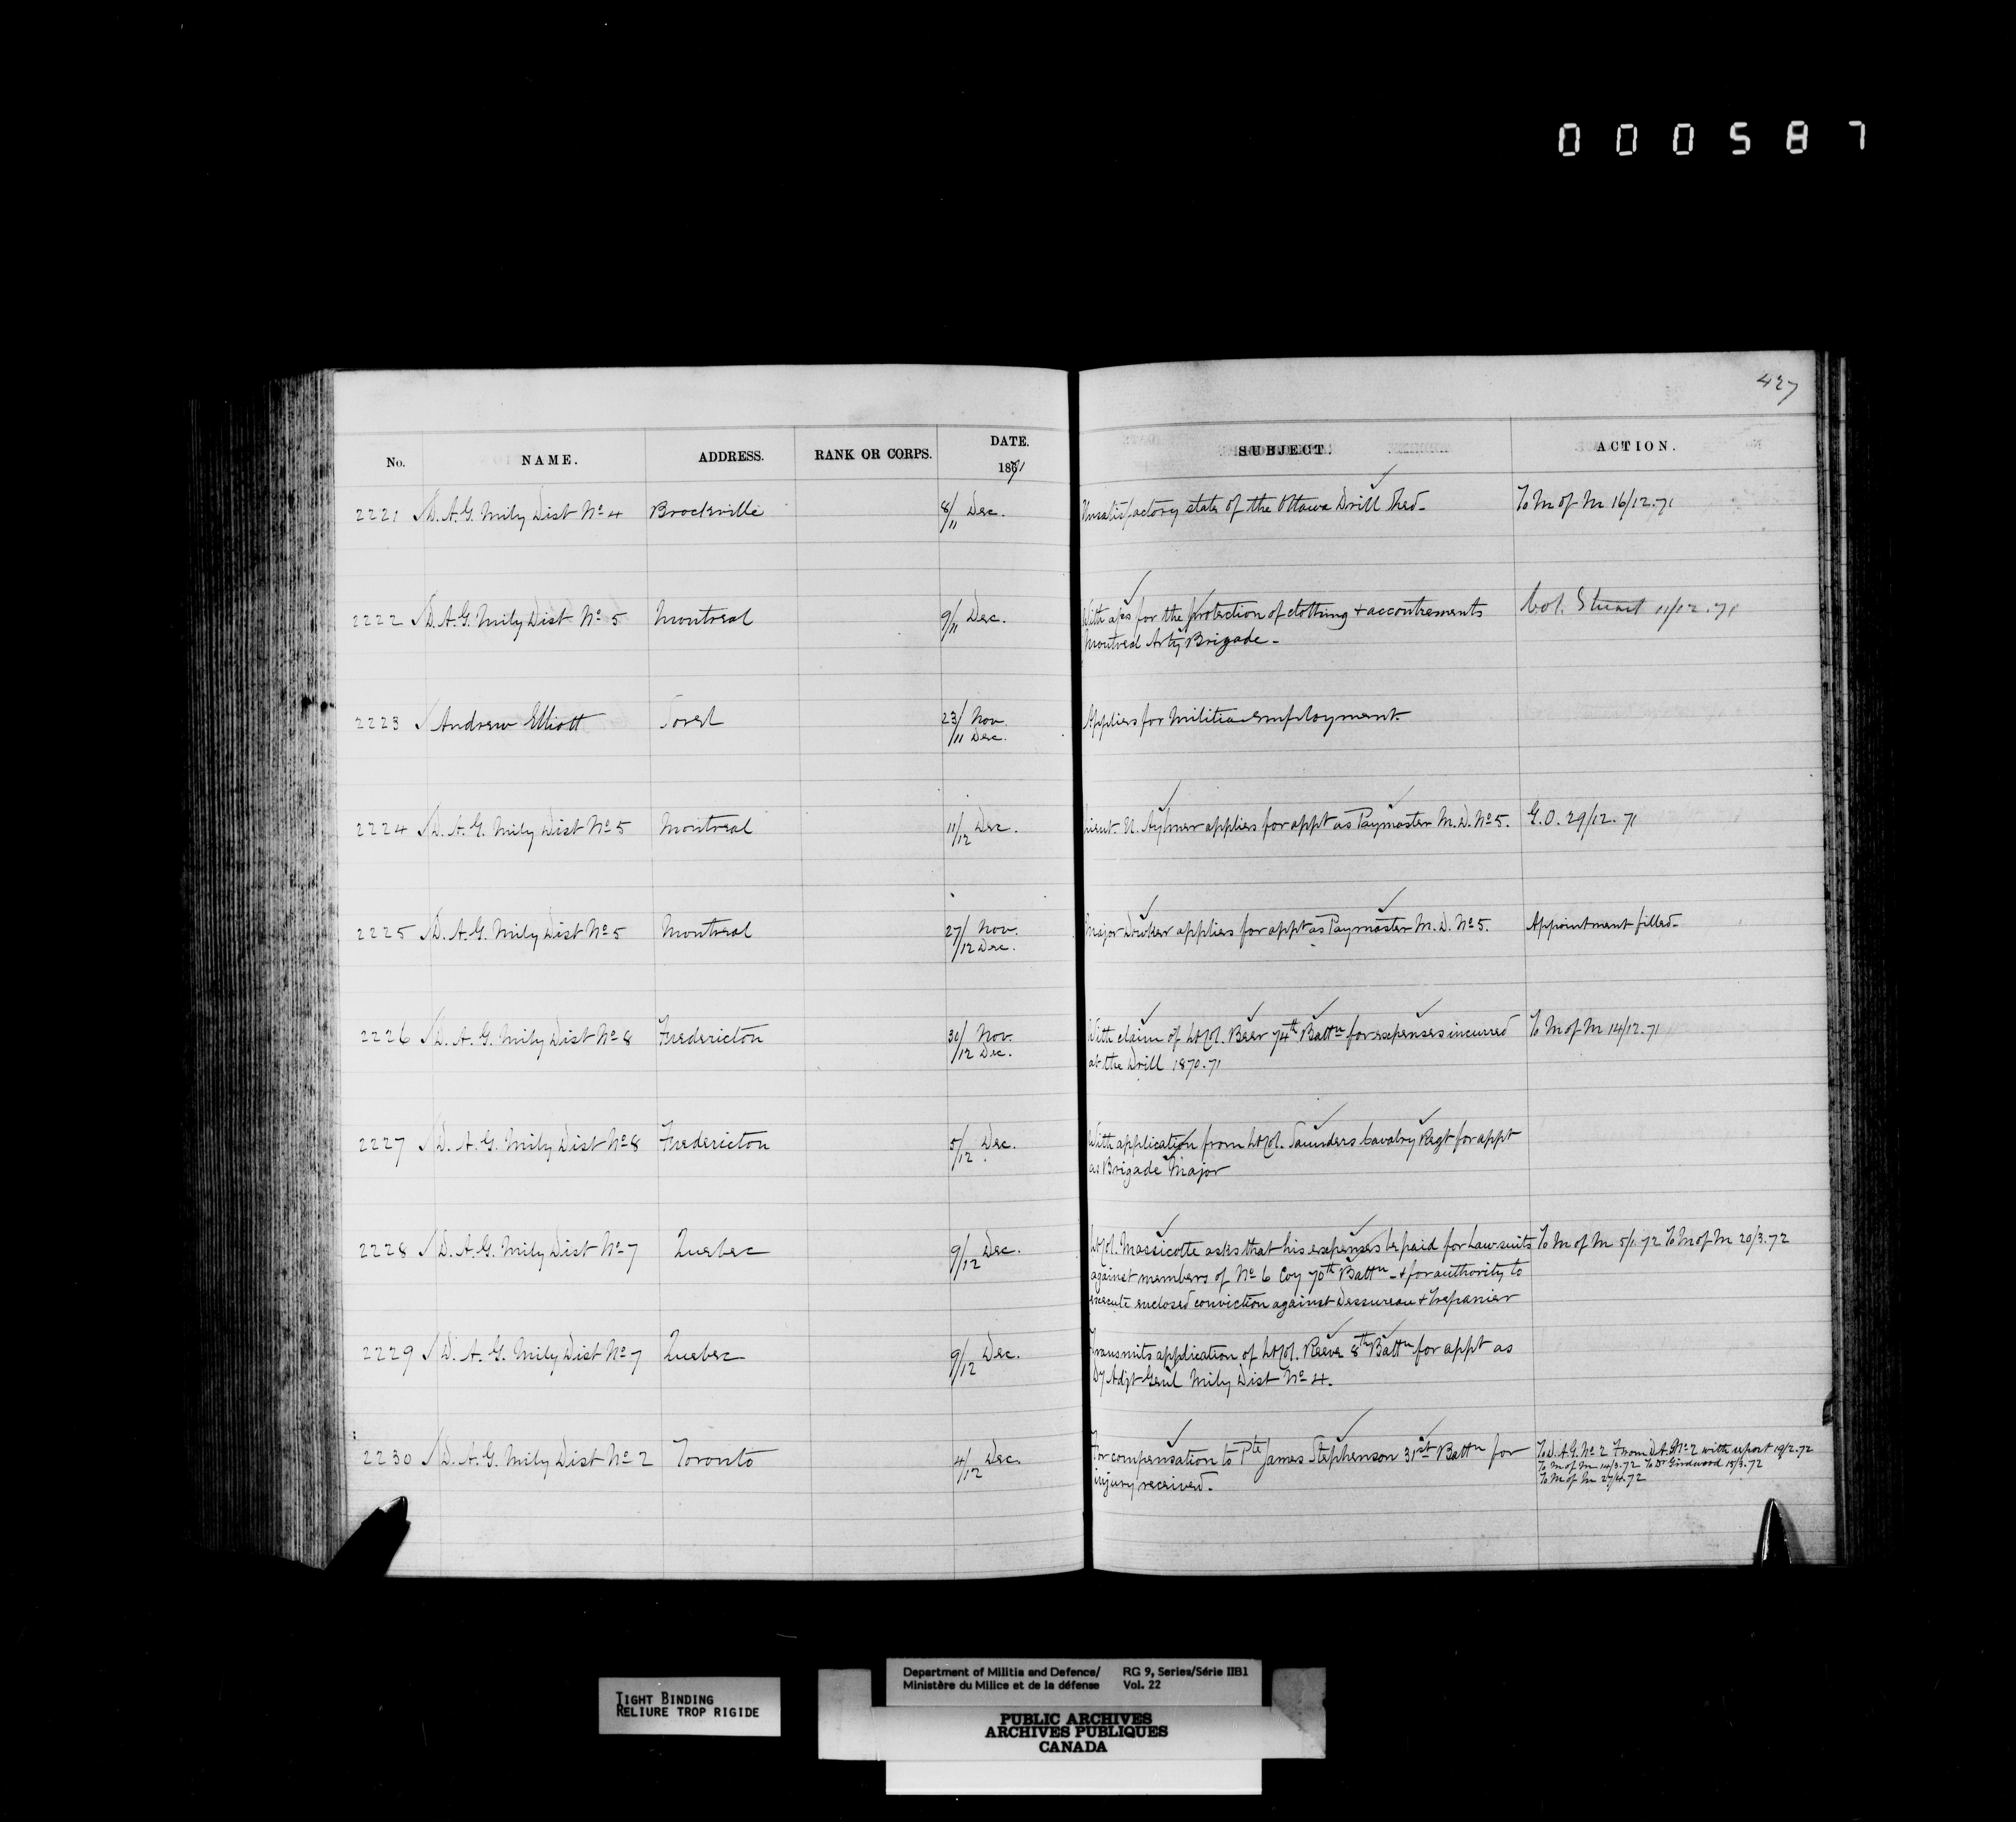 000587
427
No. NAME. ADDRESS. RANK OR CORPS. DATE. 1871 SUBJECT. ACTION.
2221 D. A. G. Mily Dist No 4 Brockville 8/11 Dec. Unsatisfactory state of the Ottawa Drill Shed - To M of M 16/12.71
2222 D. A. G. Mily Dist No 5 Montreal 9/11 Dec. With a/cs for the protection of clothing + accoutrements Col. Stuart 11/12.71
Montreal Arty Brigade -
2223 Andrew Elliott Forest 23/ Nov. Applies for Militia employment.
/11 Dec.
2224 D. A. G. Mily Dist No 5 Montreal 11/12 Dec. Lieut. Aylmer applies for appt as Paymaster M. D. No 5. G. O. 29/12. 71
2225 D. A. G. Mily Dist No 5 Montreal 27/ Nov. Major applies for appt as Paymaster M. D. No 5. Appointment filled -
/12 Dec.
2226 D. A. G. Mily Dist No 8 Fredericton 30/ Nov. With claim of Lt Col. Beer 74th Battn for expenses incurred To M of M 14/12.71
/12 Dec. at the Drill 1870.71
2227 D. A. G. Mily Dist No 8 Fredericton 5/12 Dec. With application from Lt Col. Saunders Cavalry Regt for appt
as Brigade Major
2228 D. A. G. Mily Dist No 7 Quebec 9/12 Dec. Lt Col. Massicotte asks that his expenses be paid for Lawsuits To M of M 5/1.72 To M of M 20/3.72
against members of No 6 Coy 70th Battn - + for authority to
execute enclosed conviction against Dessureau + Trepanier
2229 D. A. G. Mily Dist No 7 Quebec 9/12 Dec. Transmits application of Lt Col. Reeve 8th Battn for appt as
Dy Adjt Genl Mily Dist No 4.
2230 D. A. G. Mily Dist No 2 Toronto 4/12 Dec. For compensation to Pte James Stephenson 31st Battn for To D. A. G. No 2 From D. A. G. No 2 with report 19/2.72
injury received. To M of M 14/3.72 To Dr Girdwood 15/3.72
To M of M 27/4.72
TIGHT BINDING
RELIURE TROP RIGIDE
Department of Militia and Defence/ RG 9, Series/Série IIB1
Ministère du Milice et de la défense Vol. 22
PUBLIC ARCHIVES
ARCHIVES PUBLIQUES
CANADA